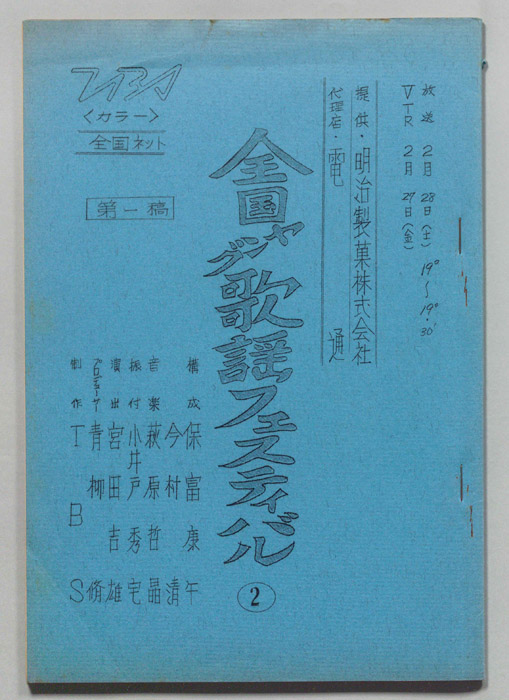 放送 2月28日(土) 19⁰⁰〜19・30′
VTR 2月27日(金)
提供・明治製菓株式会社
代理店・電通
全国ヤング歌謡フェスティバル
②
TBS
〈カラー〉
全国ネット
第一稿
構成 保富康午
今村清
音楽 萩原哲晶
振付 小井戸秀宅
演出 宮田吉雄
プロデューサー 青柳脩
制作 TBS